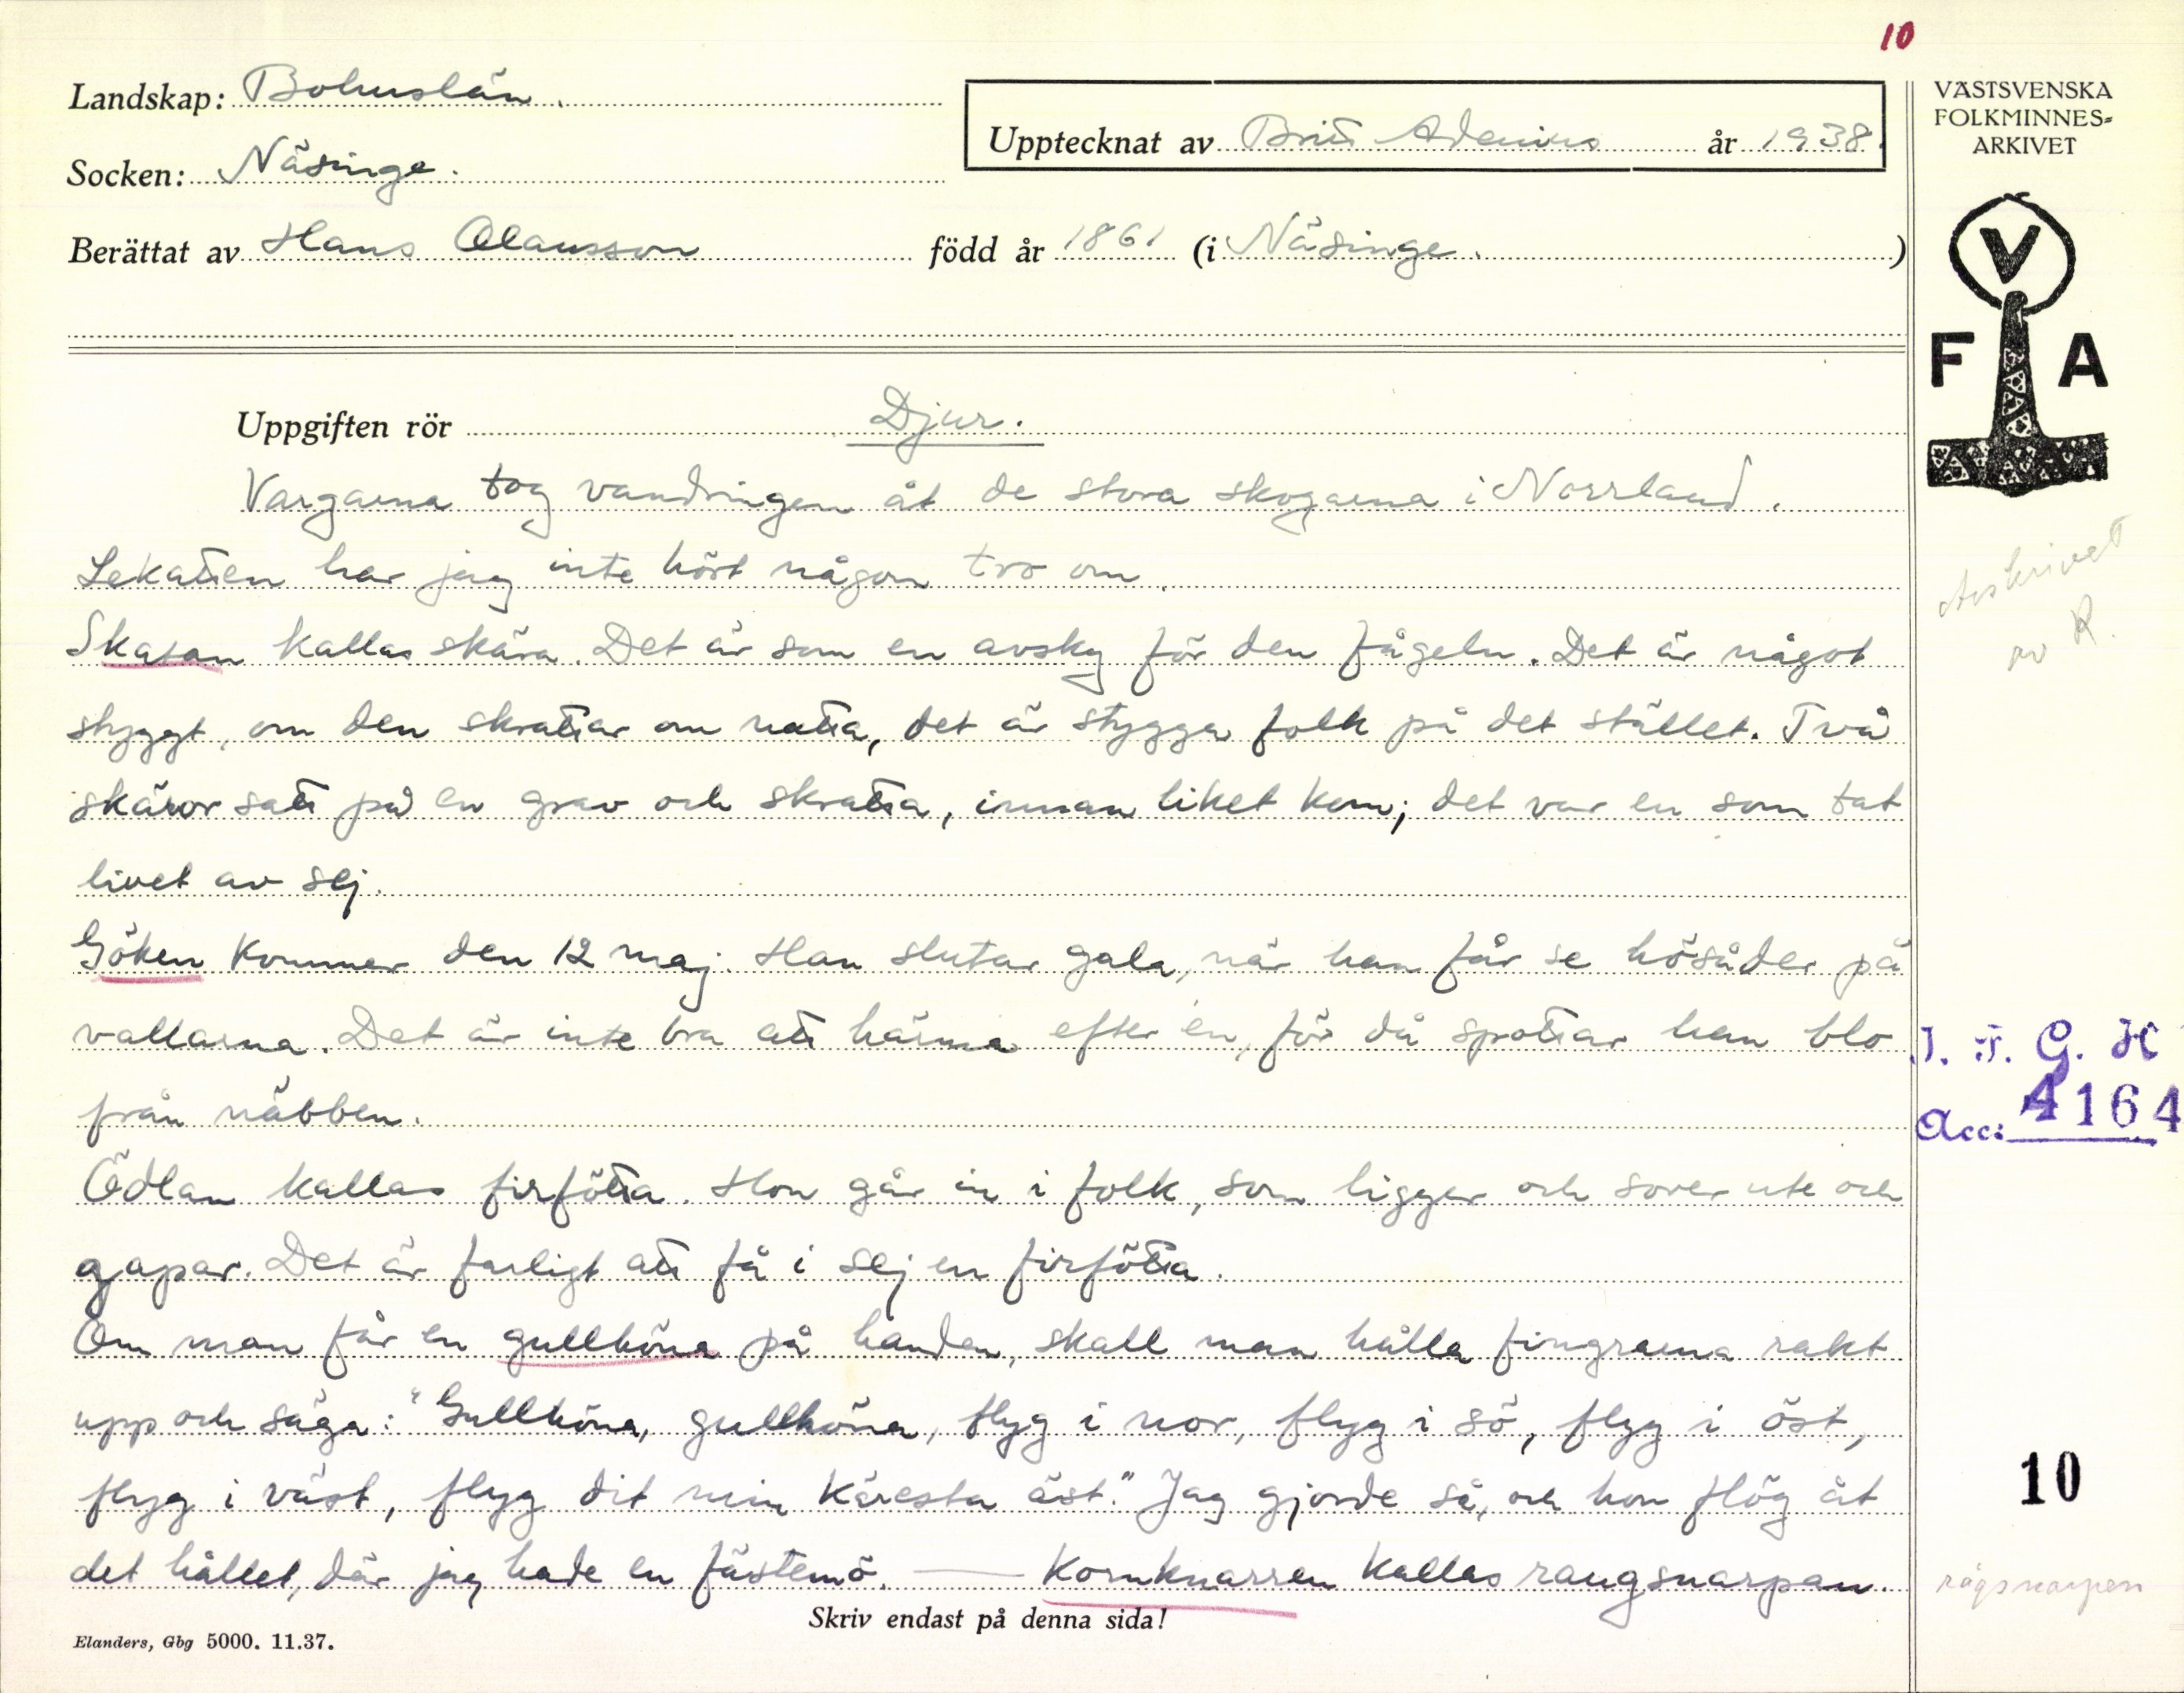 10
Landskap: Bohuslän.
Upptecknat av Britt Adenius år 1938.
Socken: Näsinge.
Berättat av Hans Olausson född år 1861 (i Näsinge.)
VÄSTSVENSKA
FOLKMINNES-
ARKIVET
V
F A
Uppgiften rör Djur.
Vargarna tog vandringen åt de stora skogarna i Norrland.
Lekatten har jag inte hört någon tro om.
Skatan kallas skära. Det är som en avsky för den fågeln. Det är något
styggt, om den skrattar om natta, det är stygga folk på det stället. Två
skäror satt på en grav och skratta, innan liket kom; det var en som tat
livet av sej.
Göken kommer den 12 maj. Han slutar gala, när han får se hösåder på
vallarna. Det är inte bra att härma efter en, för då spottar han blo
från näbben.
Ödlan kallas firfötta. Hon går in i folk, som ligger och sover ute och
gapar. Det är farligt att få i sej en firfötta.
Om man får en gullhöna på handen, skall man hålla fingrarna rakt
upp och säga: "Gullhöna, gullhöna, flyg i nor, flyg i sö, flyg i öst,
flyg i väst, flyg dit min käresta äst." Jag gjorde så, och hon flög åt
det hållet, där jag hade en fästemö. — Kornknarren kallas raugsnarpan.
Avskrivet
av R.
I. F. G. H
Acc: 4164
10
rågsnarpen
Skriv endast på denna sida!
Elanders, Gbg 5000. 11.37.